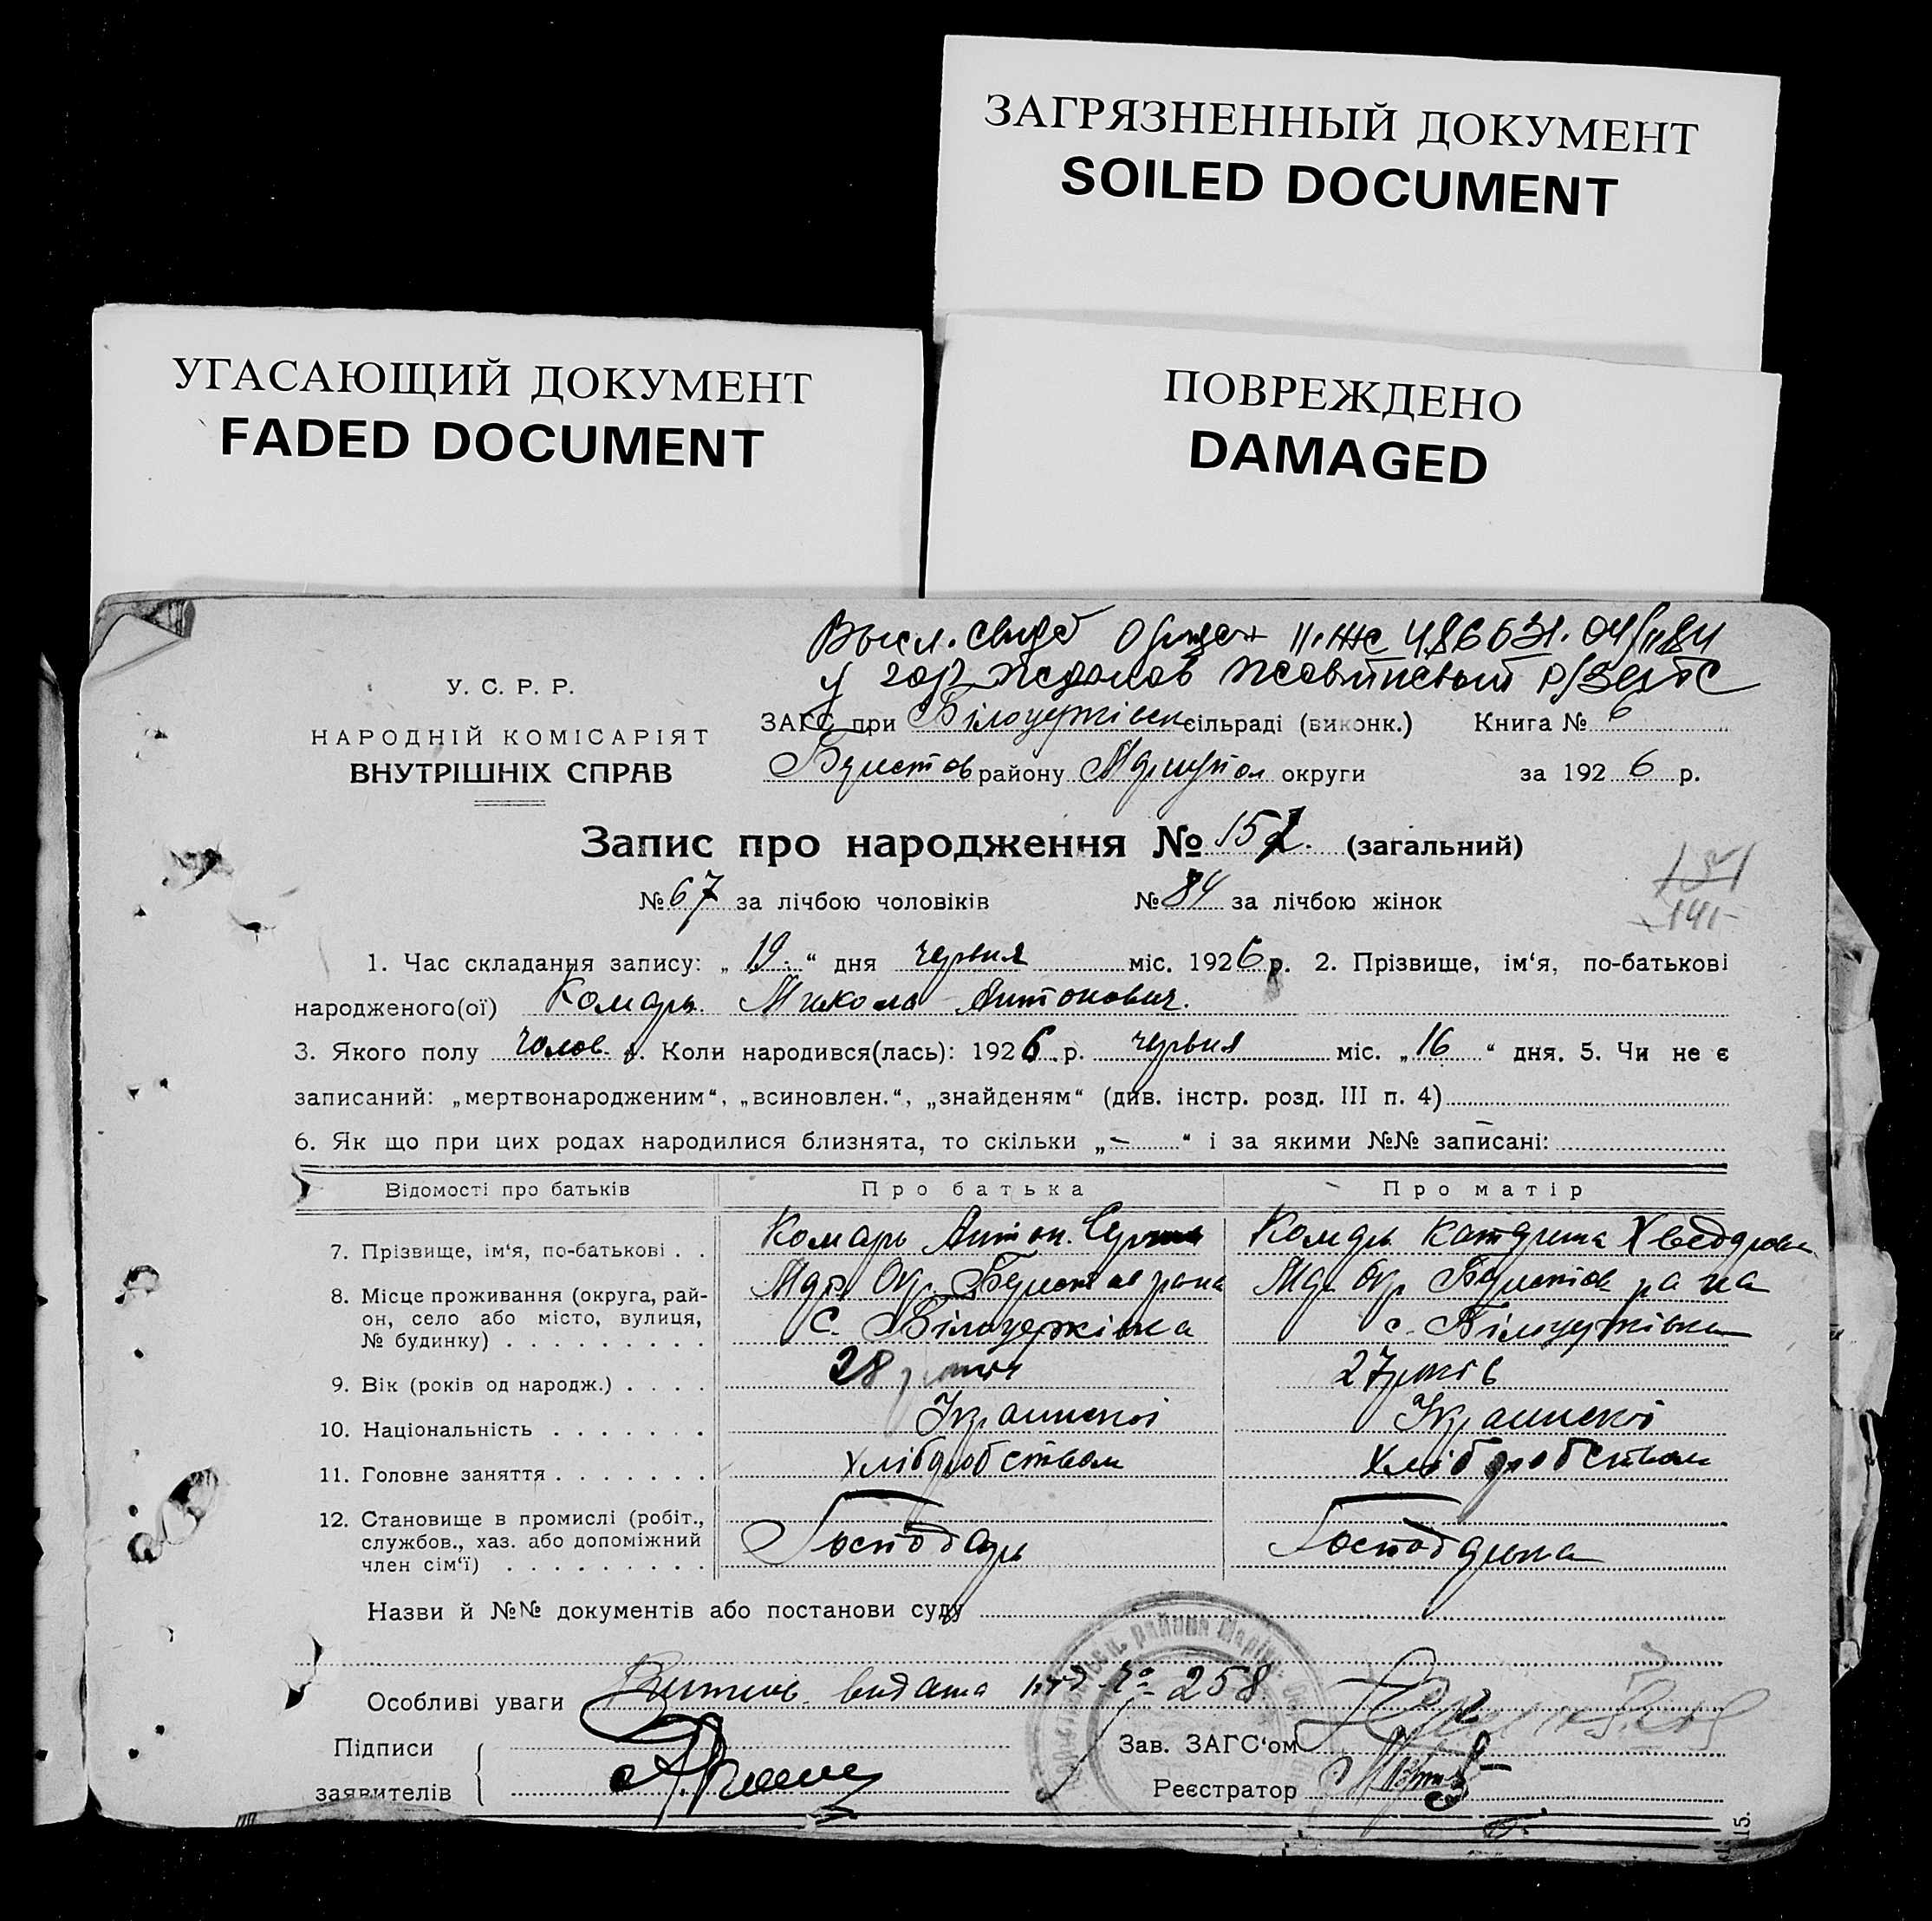 ЗАГРЯЗНЕННЫЙ ДОКУМЕНТ
SOILED DOCUMENT
УГАСАЮЩИЙ ДОКУМЕНТ
FADED DOCUMENT
ПОВРЕЖДЕНО
DAMAGED
У. С. Р. Р.
НАРОДНІЙ КОМІСАРІЯТ
ВНУТРІШНІХ СПРАВ
ЗАГС при Білоцерківск сільраді (виконк.) Книга № 6
району Маріупол округи за 1926 р.
Запис про народження № 152. (загальний)
№ 67 за лічбою чоловіків № 84 за лічбою жінок
151
141
1. Час складання запису: „19.“ дня червня міс. 1926 р. 2. Прізвище, ім‘я, по-батькові
народженого(ої) Комарь Микола Антонович.
3. Якого полу чолов. 4. Коли народився(лась): 1926 р. червня міс. „16“ дня. 5. Чи не є
записаний: „мертвонародженим“, „всиновлен.“, „знайденям“ (див. інстр. розд. III п. 4)
6. Як що при цих родах народилися близнята, то скільки „—“ і за якими №№ записані:
Відомості про батьків Про батька Про матір
7. Прізвище, ім‘я, по-батькові . . Комарь Антон Комарь Катерина
8. Місце проживання (округа, рай-
он, село або місто, вулиця, с. Білоцерківка с. Білоцерківка
№ будинку)
9. Вік (років од народж.) . . . . 28 років 27 років
10. Національність . . . . . . . Украинскої Украинскої
11. Головне заняття . . . . . . . хліборобством хліборобством
12. Становище в промислі (робіт.,
службов., хаз. або допоміжний Господарь Господарька
член сім‘ї) . . . . . . . . .
Назви й №№ документів або постанови суду
Особливі уваги видана під № 258
Підписи Зав. ЗАГС‘ом
заявителів Реєстратор
15.